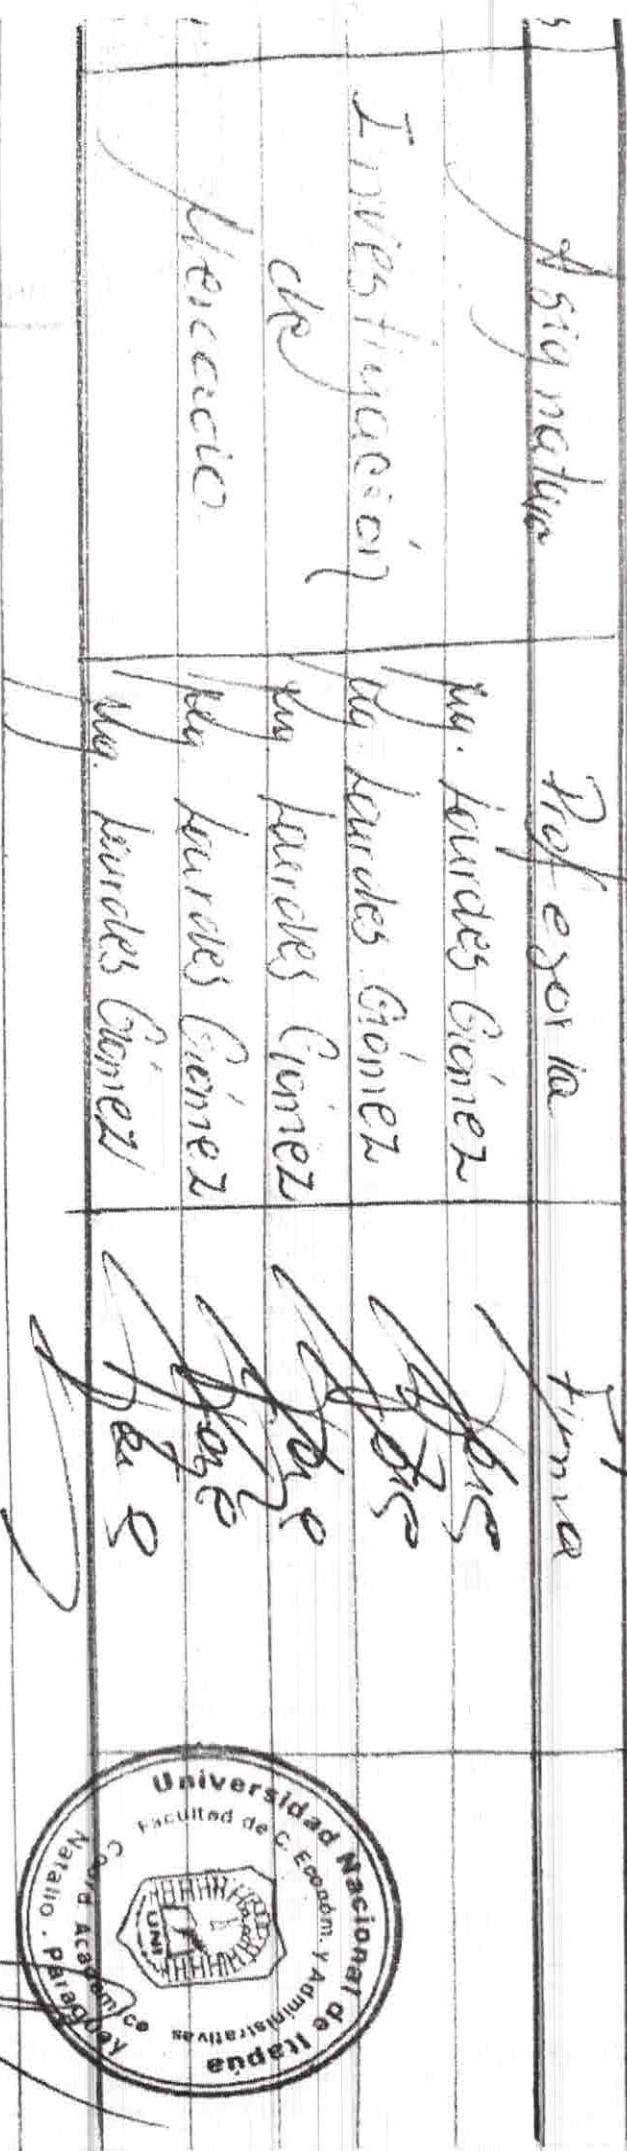 Asignatura Profesor/a Firma
Mg. Lourdes Giómez
Investigación Mg. Lourdes Giómez
de Mg Lourdes Giómez
Mercado Mg. Lourdes Giómez
Mg. Lourdes Giómez
Universidad Nacional de Itapúa
Facultad de C. Económ. y Administrativas
UNI
Coord Académica
Natalio . Paraguay